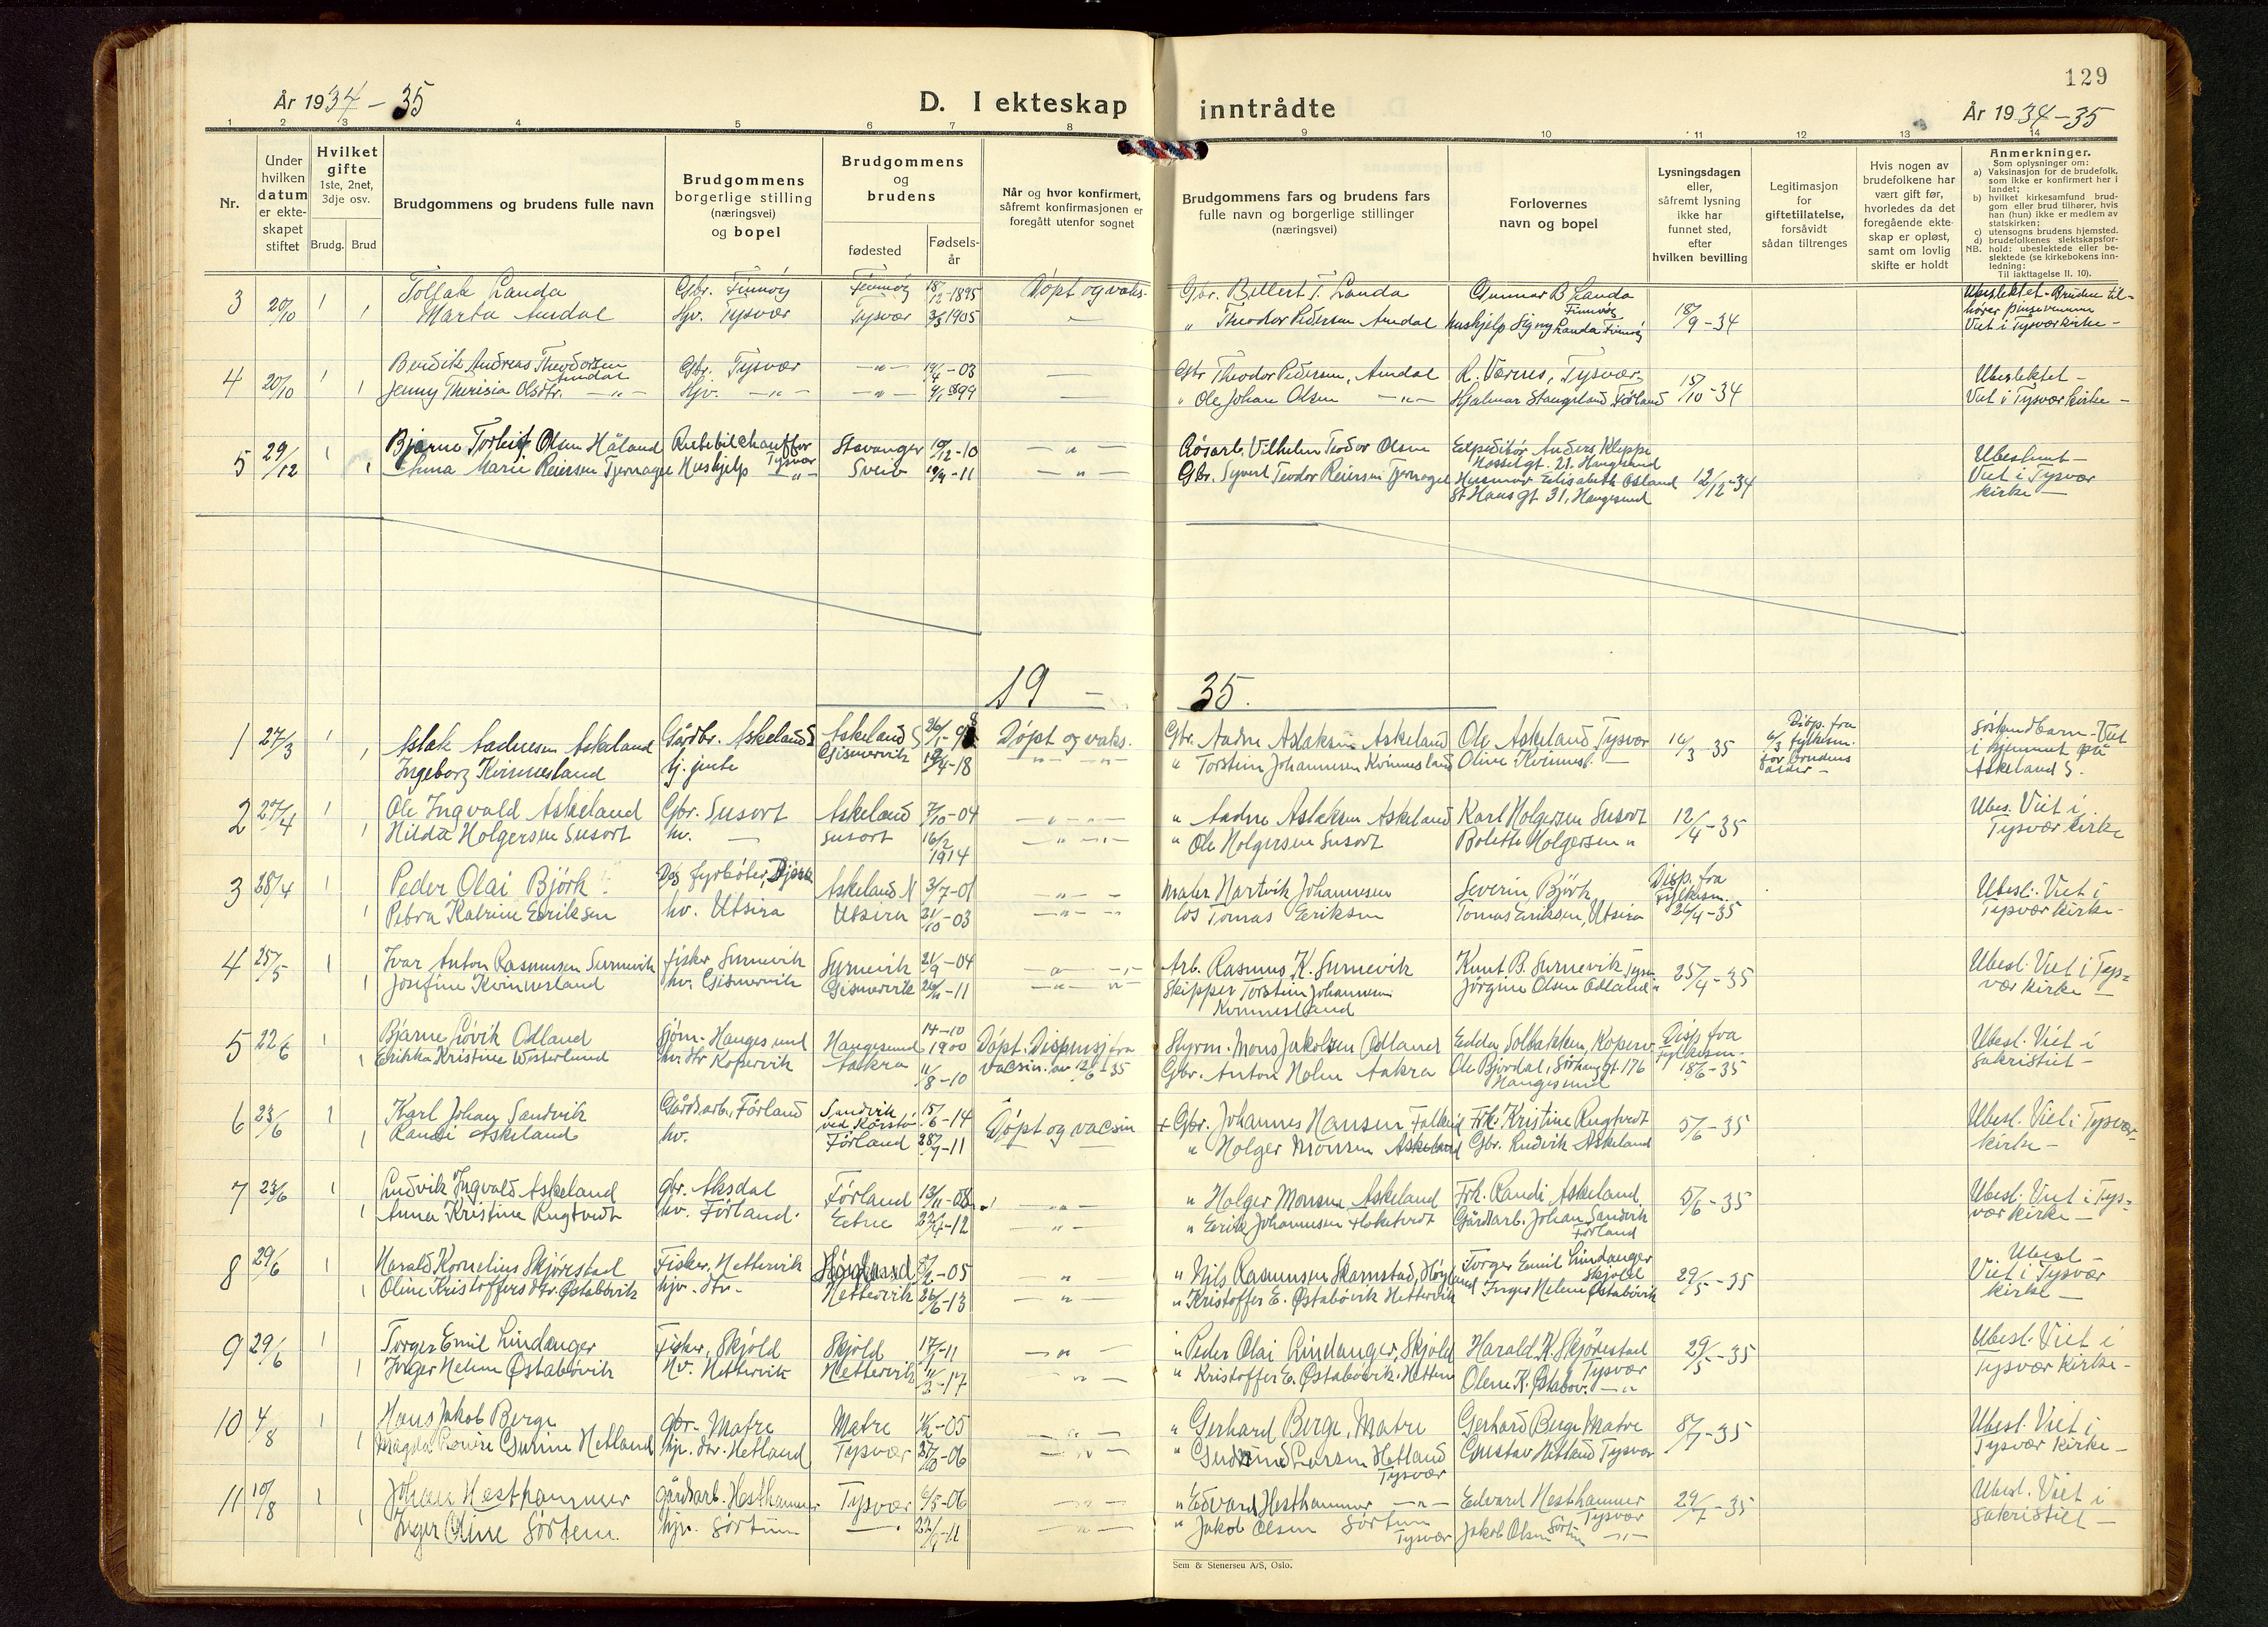 129
År 1934-35
D. I ekteskap inntrådte
År 1934-35
1 2 3 4 5 6 7 8 9 10 11 12 13 14
Nr.
Under hvilken datum er ekteskapet stiftet
Hvilket gifte
1ste, 2net, 3dje osv.
Brudg. Brud
Brudgommens og brudens fulle navn
Brudgommens borgerlige stilling (næringsvei) og bopel
Brudgommens og brudens
fødested
Fødselsår
Når og hvor konfirmert, såfremt konfirmasjonen er foregått utenfor sognet
Brudgommens fars og brudens fars fulle navn og borgerlige stillinger (næringsvei)
Forlovernes navn og bopel
Lysningsdagen eller, såfremt lysning ikke har funnet sted, efter hvilken bevilling
Legitimasjon for giftetillatelse, forsåvidt sådan tiltrenges
Hvis nogen av brudefolkene har vært gift før, hvorledes da det foregående ekteskap er opløst, samt om lovlig skifte er holdt
Anmerkninger.
Som oplysninger om:
a) Vaksinasjon for de brudefolk, som ikke er konfirmert her i landet;
b) hvilket kirkesamfund brudgom eller brud tilhører, hvis han (hun) ikke er medlem av statskirken;
c) utensogns brudens hjemsted.
d) brudefolkenes slektskapsforhold: ubeslektede eller beslektede (se kirkebokens innledning:
NB. Til iakttagelse II. 10).
3 20/10 1 Tollak Landa Gbr. Finnøy Finnøy 18/12-1895 Døpt og vaks. Gbr. Billert T. Landa Gunnar B Landa Finnøy 18/9-34 Ubeslektet - Bruden tilhører pinsevenene
1 Marta Amdal Hjv. Tysvær Tysvær 3/3 1905 " Theodor Pedersen Amdal Hushjelp Signy Landa Finnøy Viet i Tysvær kirke -
4 20/10 1 Bendik Andreas Theodorsen Amdal Gbr. Tysvær -"- -03 Gbr Theodor Pedersen, Amdal R. Værnes, Tysvær 15/10-34 Ubeslektet -
1 Jenny Therisia Olsdtr. -"- Hjv. -"- -"- 1899 " Ole Johan Olsen -"- Hjalmar Stangeland Førland Viet i Tysvær kirke -
5 29/12 1 Bjarne Torleif Olsen Håland Rutebilchauffør Tysvær Stavanger 10/12-10 -"- Rørarb. Vilhelm Teodor Olsen Expeditør Anders Kleppe Hasselgt. 21. Haugesund 12/12-34 Ubeslekt -
1 Anna Marie Reiersen Tjernagel Hushjelp -"- Sveio -11 -"- Gbr. Syvert Teodor Reiersen Tjernagel Husmor Elisabeth Østland St Hans gt 31, Haugesund Viet i Tysvær kirke -
19 - 35.
1 27/3 1 Aslak Aadnesen Askeland Gårdbr. Askeland S Askeland S 26/1- Døpt og vaks. Gbr. Aadne Aslaksen Askeland Ole Askeland Tysvær 16/3-35 Disp. fra 6/3 fylkesm. for brudens alder - Søskendbarn - Viet i hjemmet på Askeland S.
1 Ingeborg Kvinnesland hj. jente Gismervik -18 -"- " Torstein Johannesen Kvinnesland Oline Kvinnesl. -
2 27/4 1 Ole Ingvald Askeland Gbr. Susort Askeland 7/10-04 -"- " Aadne Aslaksen Askeland Karl Holgersen Susort 12/4-35 Ubes. Viet i Tysvær kirke
1 Hilda Holgersen Susort hv. - Susort 16/2 1914 -"- " Ole Holgersen Susort Bolette Holgersen "
3 28/4 1 Peder Olai Björk fyrbøter, Askeland N 3/7-01 -"- Maler Hartvik Johannesen Severin Björk Disp. fra Fylkesm. 26/4-35 Ubesl. Viet i Tysvær kirke -
1 Petra Katrine Eriksen hv. Utsira Utsira 21/10-03 -"- los Tomas Eriksen Tomas Eriksen, Utsira
4 25/5 1 Ivar Anton Rasmussen Surnevik fisker Surnevik Surnevik 21/9-04 -"- Arb. Rasmus K. Surnevik Knut B. Surnevik Tysv. 25/4-35 Ubesl. Viet i Tysvær kirke -
1 Josefine Kvinnesland hv. Gismervik Gismervik -11 -"- Skipper Torstein Johannesen Kvinnesland Jørgine Olsen Odland "
5 22/6 1 Bjarne Løvik Odland Sjøm. Haugesund Haugesund 14-10 1900 Døpt. Dispensj fra vacsin. av 12/6-35 Styrm. Mons Jakobsen Odland Edda Solbakken, Koperv. Disp fra Fylkesm. 18/6-35 Ubesl. Viet i Sakristiet -
1 Erikka Kristine Wæsterlund hv. dtr Kopervik Aakra 11/8-10 Gbr. Anton Holm Aakra Ole Bjordal, Sørhaug gt. 176 Haugesund
6 23/6 1 Karl Johan Sandvik Gårdsarb. Førland Sandvik ved Kårstø 15/6-14 Døpt og vacsin + Gbr. Johannes Hansen Falkeid Frk. Kristine Rugtvedt 5/6-35 Ubesl. Viet i Tysvær kirke -
1 Randi Askeland hv. Førland 28/9-11 " Holger Monsen Askeland Gbr. Ludvik Askeland
7 23/6 1 Ludvik Ingvald Askeland gbr. Aksdal Førland 13/11-08 -"- " Holger Monsen Askeland Frk. Randi Askeland 5/6-35 Ubesl. Viet i Tysvær kirke -
1 Anna Kristine Rugtvedt hv. Førland. Etne -12 -"- " Erik Johannesen Floketvedt Gårdsarb. Johan Sandvik Førland
8 29/6 1 Harald Kornelius Skjørestad Fisker. Hettervik Høgland -05 -"- " Nils Rasmussen Skarnstad, Høgland Torger Emil Lindanger Skjold 29/5-35 Ubesl - Viet i Tysvær kirke -
1 Oline Kristoffersdtr. Østabøvik hjv. dtr. Hettervik 26/6-13 -"- " Kristoffer E. Østabøvik Hettervik Inger Helene Østabøvik
9 29/6 1 Torger Emil Lindanger Fisker, Skjold Skjold -11 -"- " Peder Olai Lindanger, Skjold Harald K. Skjørestad Tysvær 29/5-35 Ubesl. Viet i Tysvær kirke -
1 Inger Helene Østabøvik Hv. Hettervik Hettervik -17 -"- " Kristoffer E. Østabøvik. Hetterv Olene K. Østabøv. -"-
10 4/8 1 Hans Jakob Berge gbr. Matre Matre -05 -"- " Gerhard Berge, Matre Gerhard Berge Matre 8/7-35 Ubesl. Viet i Tysvær kirke -
1 Magda Gurine Hetland hjv. dtr. Hetland Tysvær 27/10-06 -"- " Gudmund Larsen Hetland Tysvær Gustav Hetland Tysvær
11 10/8 1 Johan Hesthammer gårdsarb. Hesthammer Tysvær 6/5-06 -"- " Edvard Hesthammer -"- Edvard Hesthammer Tysvær 29/7-35 Ubesl. Viet i Sakristiet -
1 Inger Oline Sørtun. hjv. Sørtun -"- -11 -"- " Jakob Olsen Sørtun Tysvær Jakob Olsen Sørtun -"-
Sem & Stenersen A/S, Oslo.